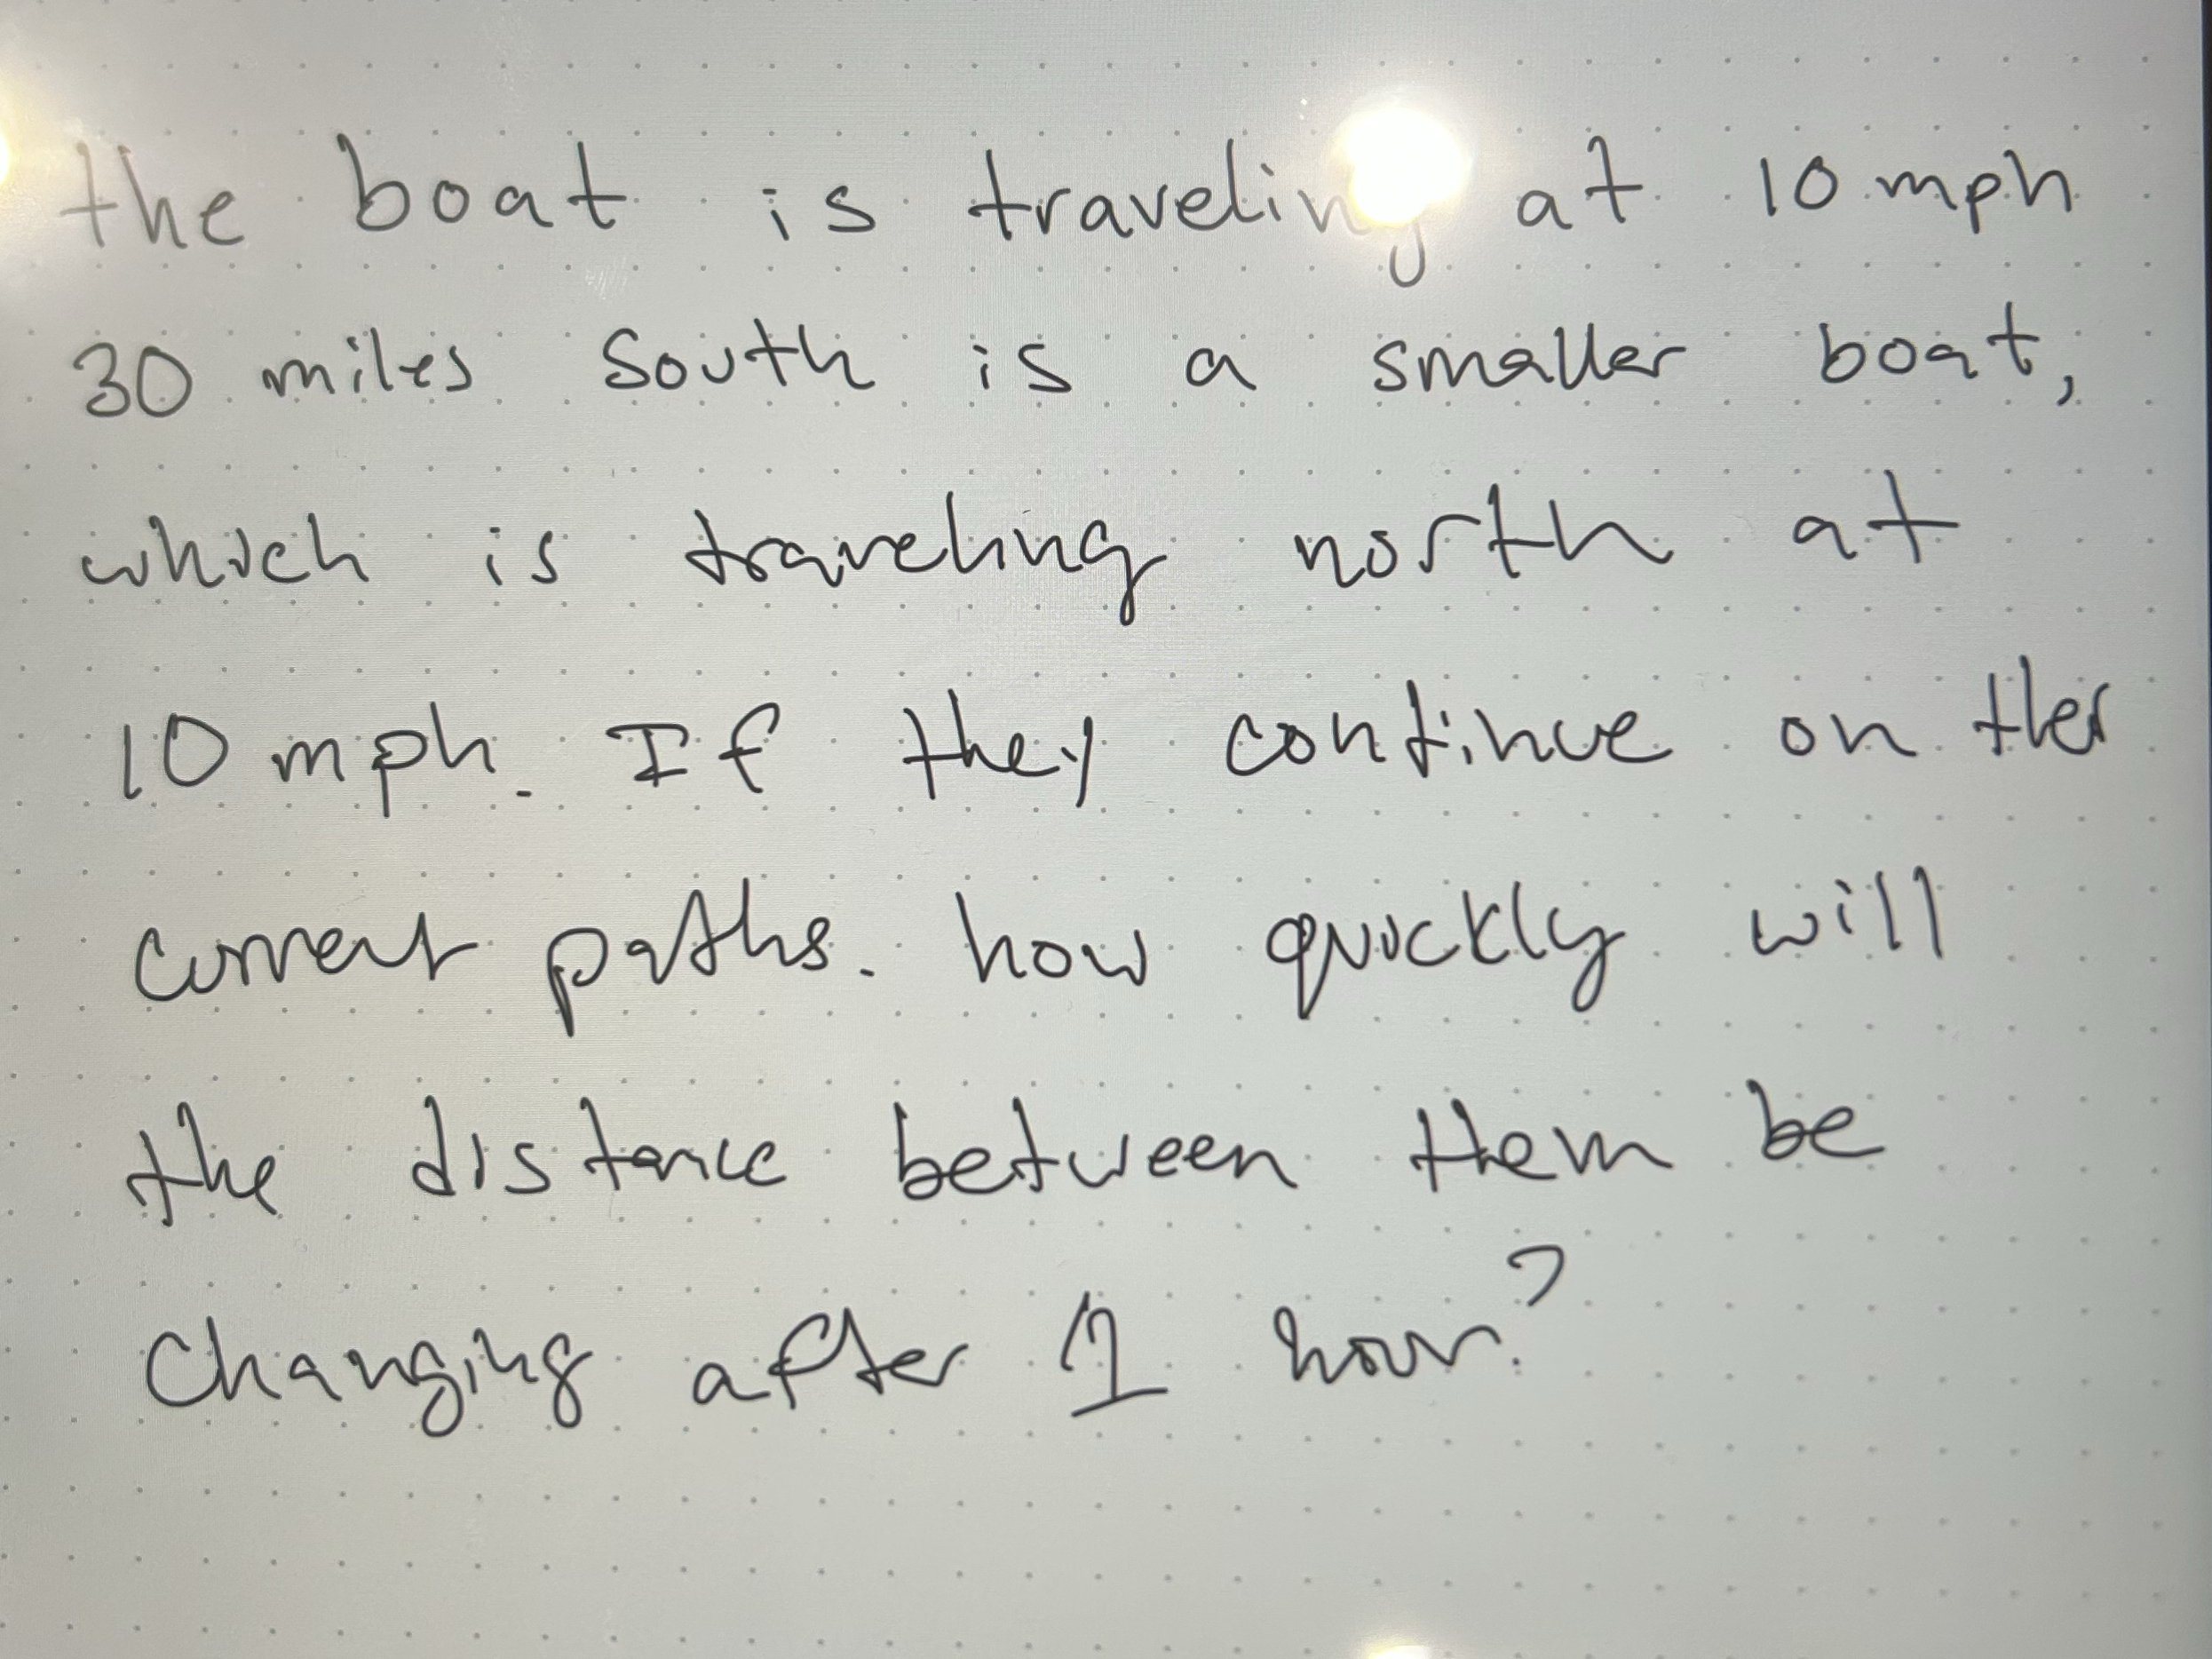 the boat is traveling at 10 mph
30 miles South is a smaller boat,
which is traveling north at
10 mph. If they continue on ther
current paths. how quickly will
the distance between them be
changing after 1 hour?